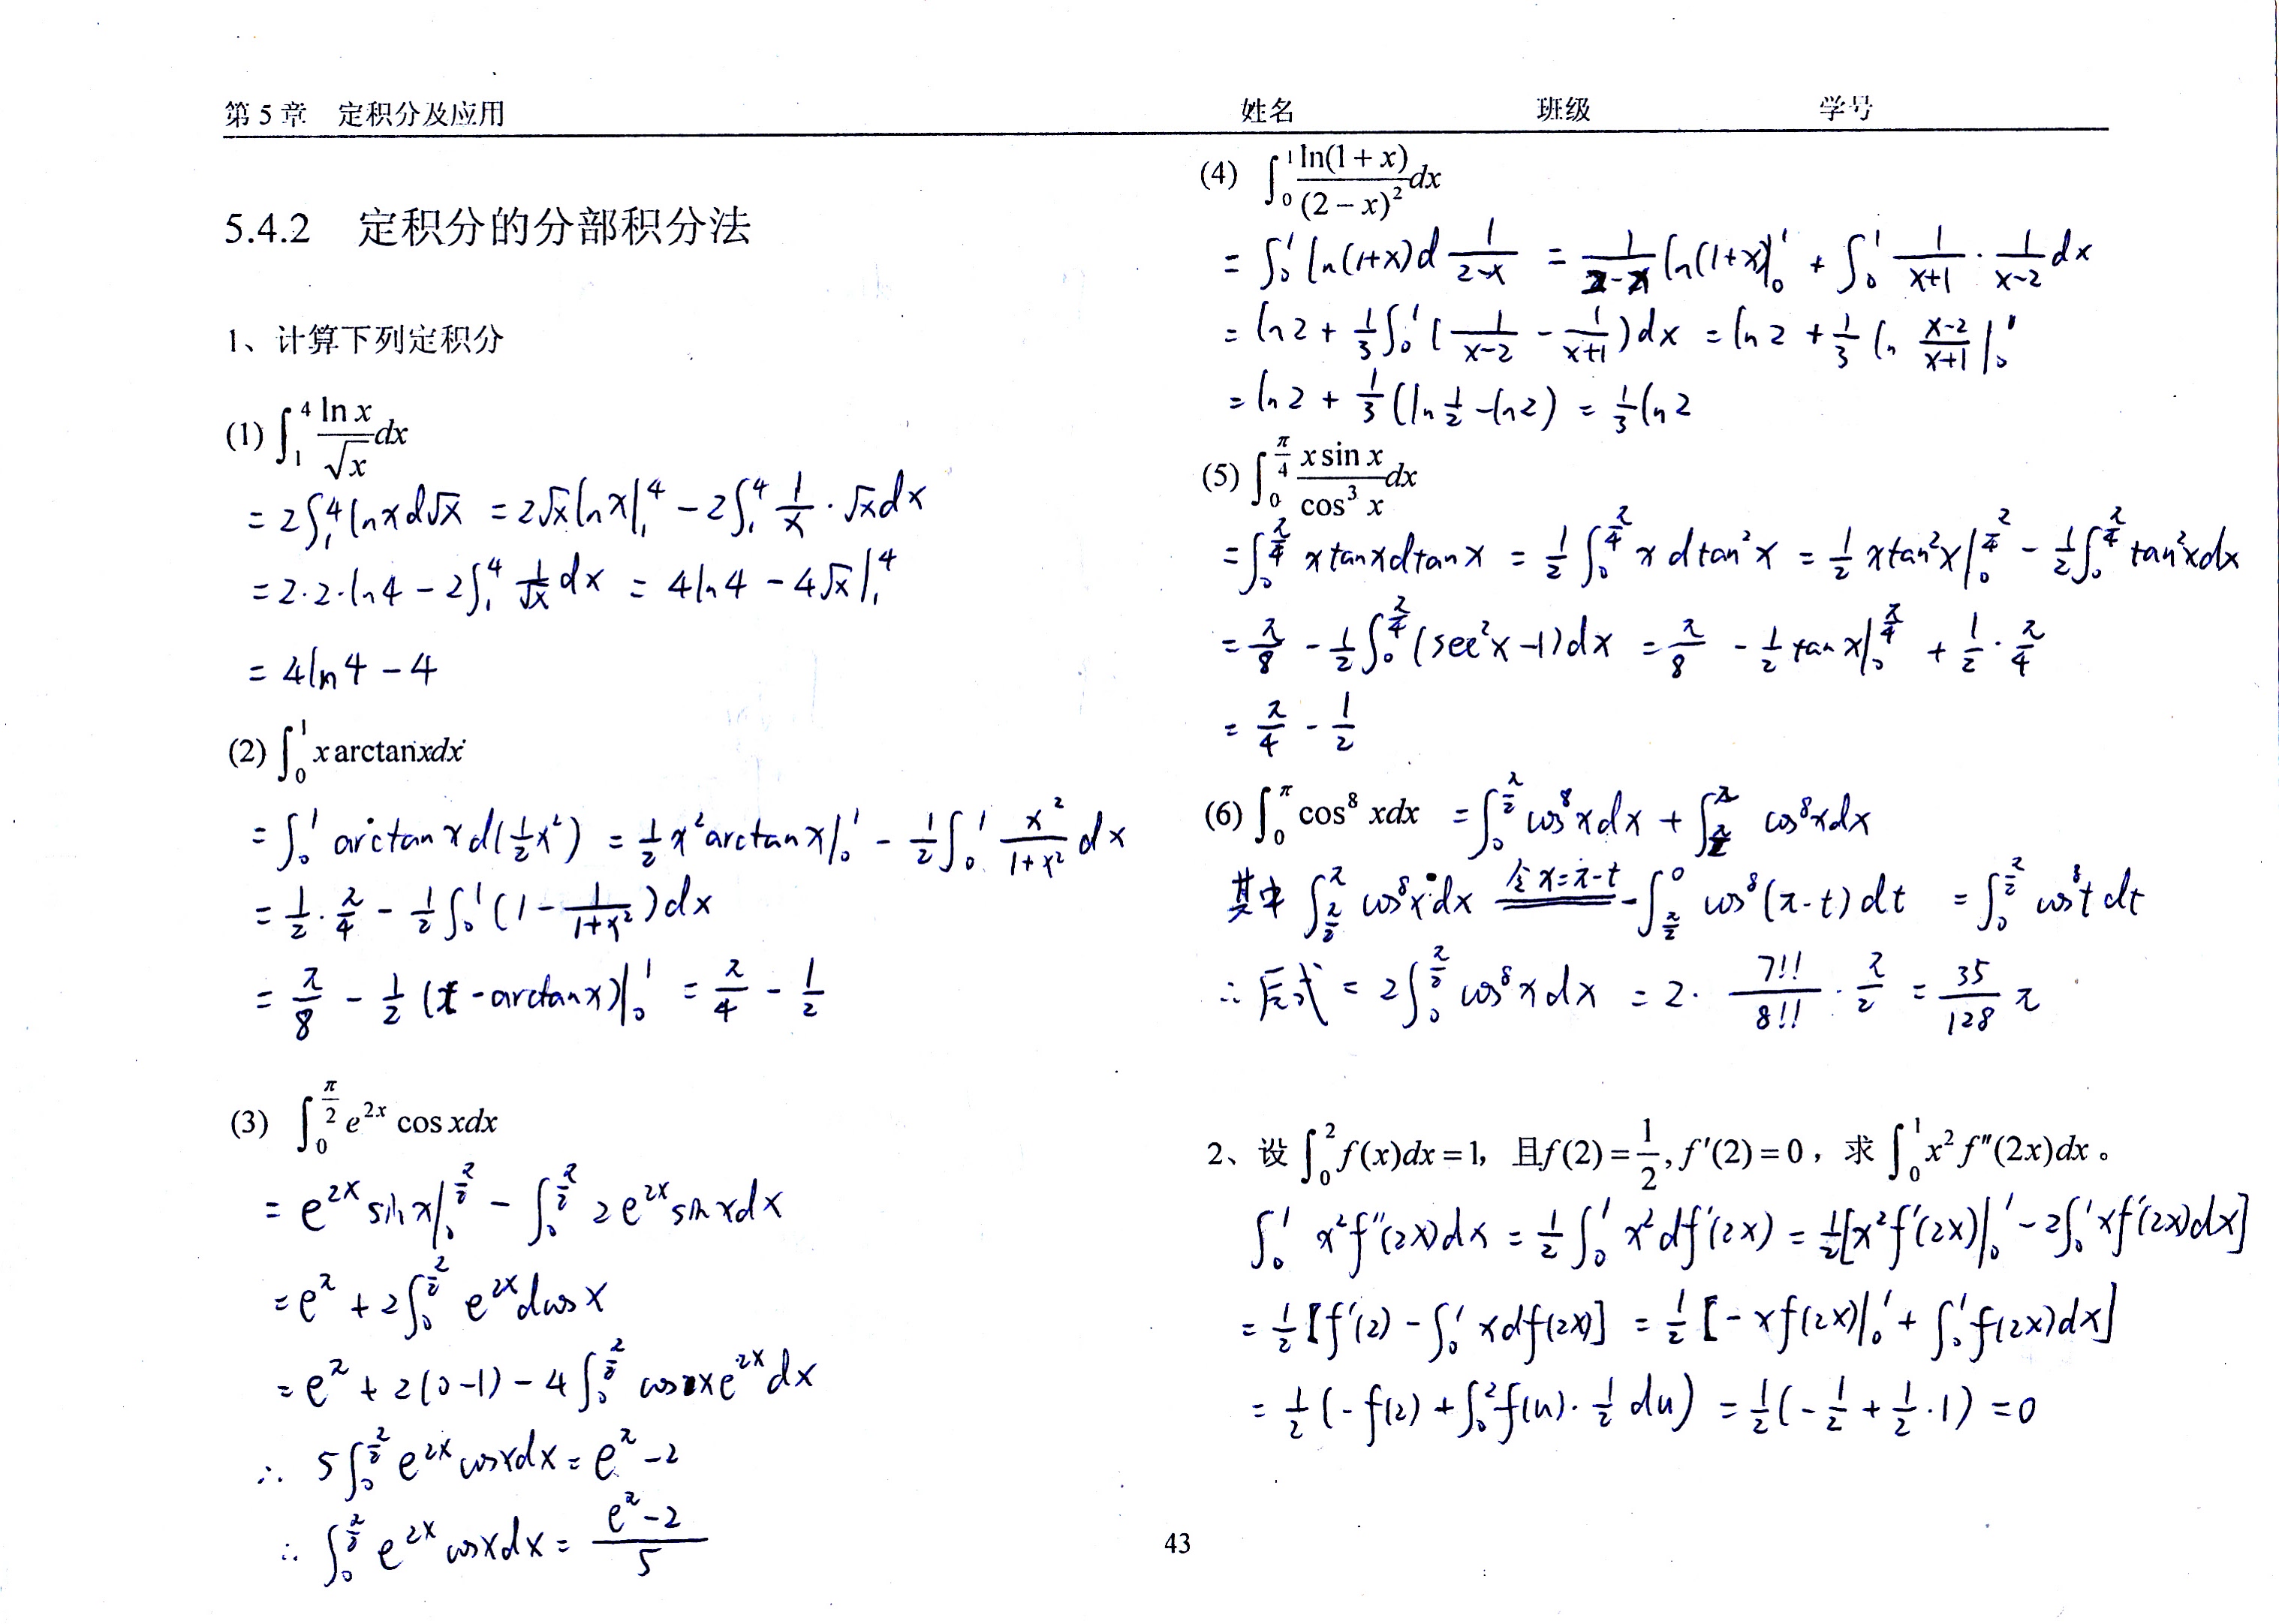 第 5 章　定积分及应用　姓名　班级　学号
5.4.2　定积分的分部积分法
1、计算下列定积分
(1) ∫₁⁴ (ln x)/(√x) dx
= 2∫₁⁴ ln x d√x = 2√x ln x|₁⁴ − 2∫₁⁴ 1/x · √x dx
= 2·2·ln 4 − 2∫₁⁴ 1/√x dx = 4 ln 4 − 4√x|₁⁴
= 4 ln 4 − 4
(2) ∫₀¹ x arctan x dx
= ∫₀¹ arctan x d(½x²) = ½x² arctan x|₀¹ − ½∫₀¹ x²/(1+x²) dx
= ½·π/4 − ½∫₀¹ (1 − 1/(1+x²)) dx
= π/8 − ½(x − arctan x)|₀¹ = π/4 − ½
(3) ∫₀^(π/2) e^(2x) cos x dx
= e^(2x) sin x|₀^(π/2) − ∫₀^(π/2) 2e^(2x) sin x dx
= e^π + 2∫₀^(π/2) e^(2x) d cos x
= e^π + 2(0−1) − 4∫₀^(π/2) cos x e^(2x) dx
∴ 5∫₀^(π/2) e^(2x) cos x dx = e^π − 2
∴ ∫₀^(π/2) e^(2x) cos x dx = (e^π − 2)/5
(4) ∫₀¹ ln(1+x)/(2−x)² dx
= ∫₀¹ ln(1+x) d 1/(2−x) = 1/(2−x) ln(1+x)|₀¹ + ∫₀¹ 1/(x+1) · 1/(x−2) dx
= ln 2 + ⅓∫₀¹ (1/(x−2) − 1/(x+1)) dx = ln 2 + ⅓ ln (x−2)/(x+1)|₀¹
= ln 2 + ⅓(ln ½ − ln 2) = ⅓ ln 2
(5) ∫₀^(π/4) (x sin x)/(cos³ x) dx
= ∫₀^(π/4) x tan x d tan x = ½∫₀^(π/4) x d tan² x = ½ x tan² x|₀^(π/4) − ½∫₀^(π/4) tan² x dx
= π/8 − ½∫₀^(π/4) (sec² x − 1) dx = π/8 − ½ tan x|₀^(π/4) + ½·π/4
= π/4 − ½
(6) ∫₀^π cos⁸ x dx = ∫₀^(π/2) cos⁸ x dx + ∫_(π/2)^π cos⁸ x dx
其中 ∫_(π/2)^π cos⁸ x dx 令 x=π−t = −∫_(π/2)^0 cos⁸(π−t) dt = ∫₀^(π/2) cos⁸ t dt
∴ 原式 = 2∫₀^(π/2) cos⁸ x dx = 2· 7!!/8!! · π/2 = 35/128 π
2、设 ∫₀² f(x)dx = 1, 且 f(2) = 1/2, f′(2) = 0，求 ∫₀¹ x² f″(2x)dx 。
∫₀¹ x² f″(2x)dx = ½∫₀¹ x² df′(2x) = ½[x² f′(2x)|₀¹ − 2∫₀¹ x f′(2x)dx]
= ½[f′(2) − ∫₀¹ x df(2x)] = ½[−x f(2x)|₀¹ + ∫₀¹ f(2x)dx]
= ½(−f(2) + ∫₀² f(u)·½ du) = ½(−½ + ½·1) = 0
43